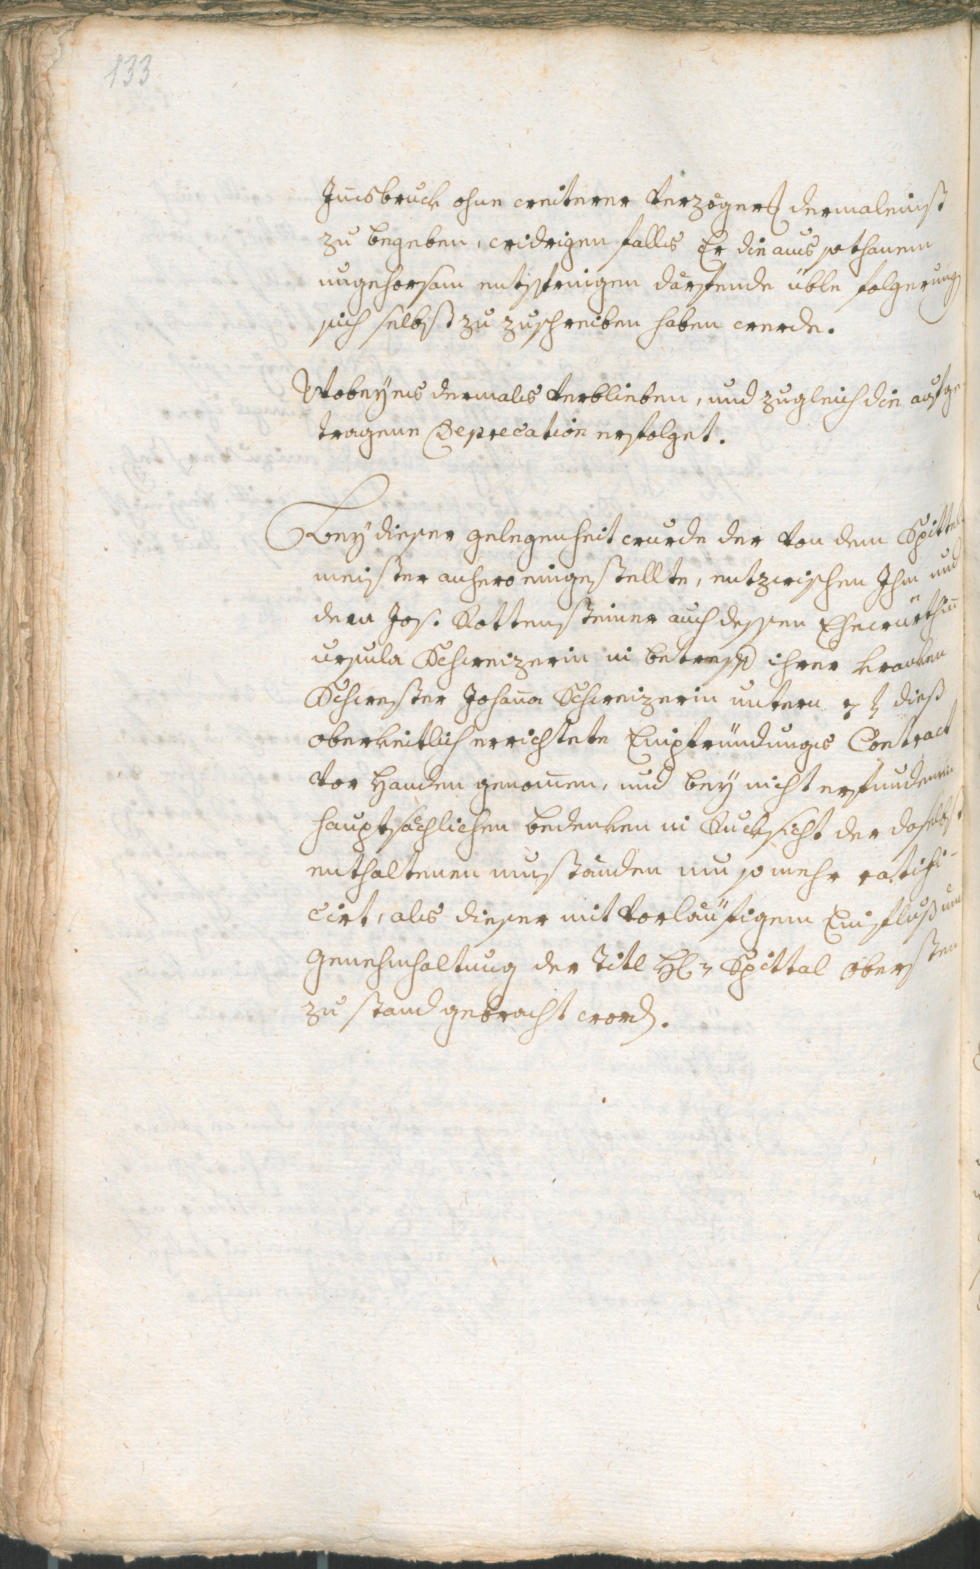 133
Innsbruck ohne weiterer Verzögerg dermaleinst
zu begeben, widrigen falls Er die aus sothanem
ungehorsam entspringen därfende üble folgerung
sich selbst zu zuschreiben haben werde.
Wobey es dermals verblieben, und zugleich die aufge
tragene Deprecation erfolget.
Bey dieser gelegenheit wurde der von dem Spittal
meister anhero eingestellte, entzwischen Ihm und
dem Jos. Rottensteiner auch dessen Ehewürthin
ursula Schweizerin in betreff ihrer kranken
Schwester Johanna Schweizerin untern dieß
oberkeitlich errichtete Einpfründungs Contract
vor Handen genomen, und bey nicht erfundenen
hauptsächlichen bedenken in Rucksicht der daselbst
enthaltenen umständen um so mehr ratifi-
cirt, als dieser mit vorläufigem Einfluß und
genehmhaltung der Titl H: Spittal obersten
zu stand gebracht word.